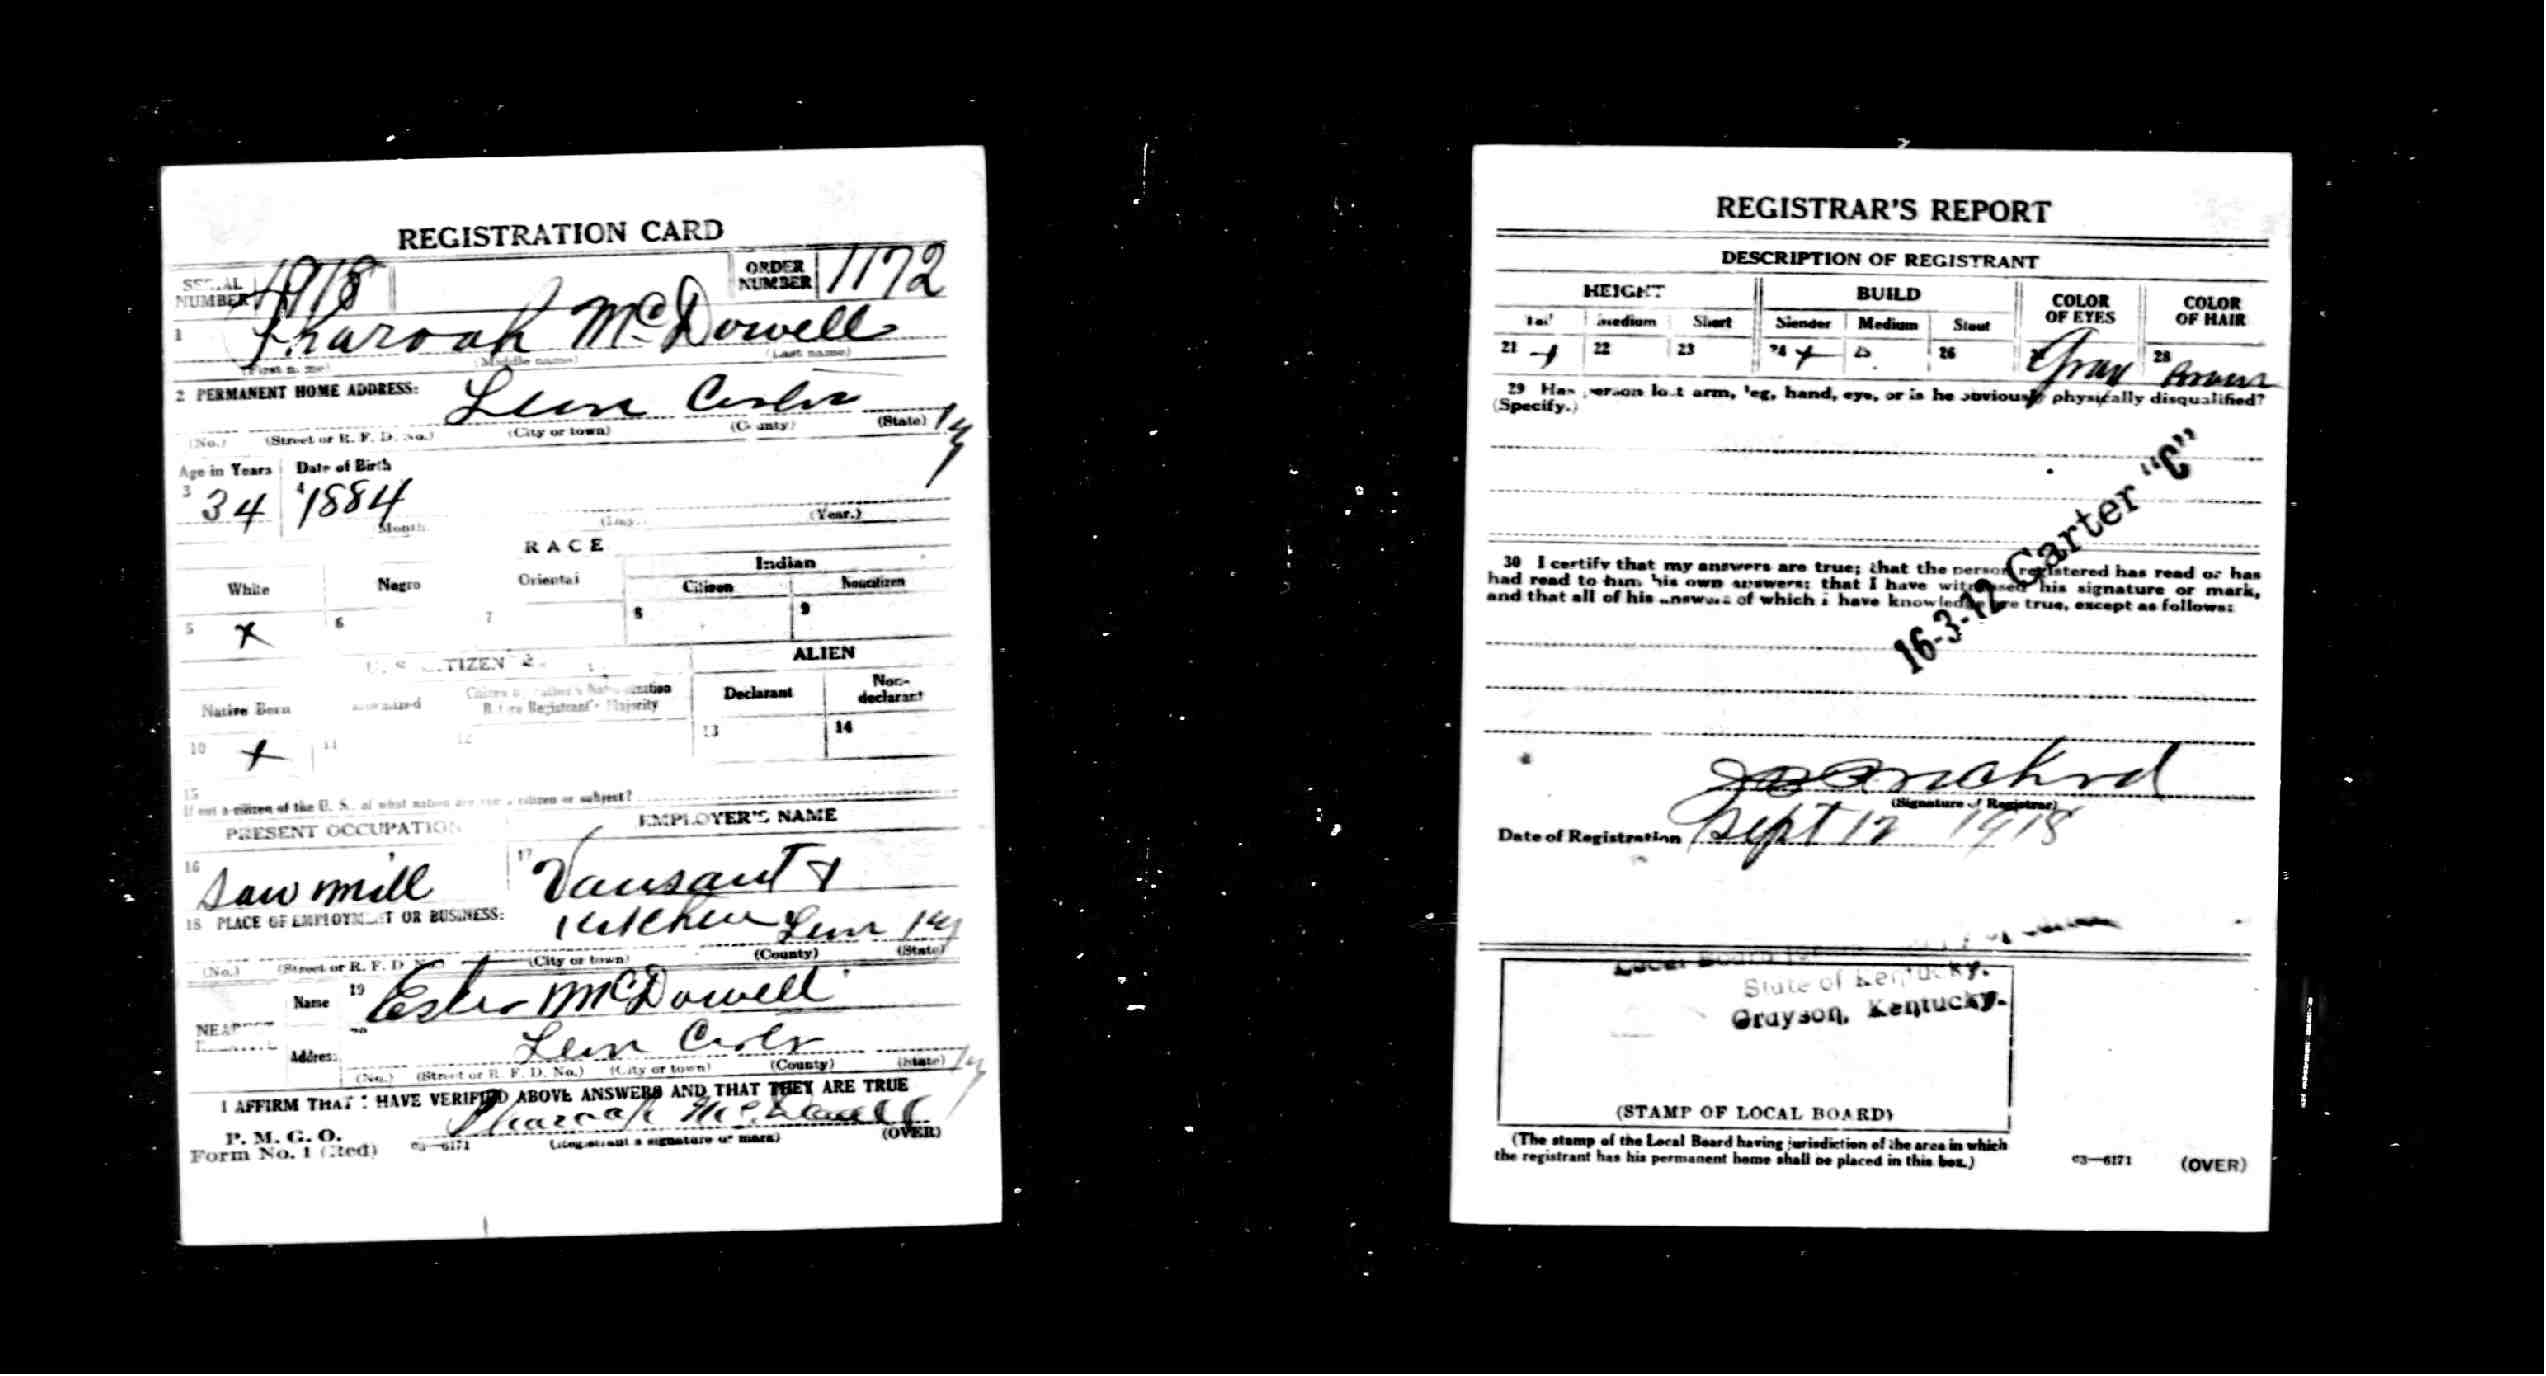 REGISTRATION CARD
SERIAL NUMBER ORDER NUMBER 1172
1 Pharoah McDowell
(First name) (Middle name) (Last name)
2 PERMANENT HOME ADDRESS: Leon Carter Ky
(No.) (Street or R. F. D. No.) (City or town) (County) (State)
Age in Years Date of Birth
3 34 4 1884
Month (Day.) (Year.)
RACE
White Negro Oriental Indian
Citizen Noncitizen
5 X 6 7 8 9
U. S. CITIZEN ALIEN
Native Born Naturalized Citizen by Father's Naturalization Before Registrant's Majority Declarant Non-declarant
10 X 11 12 13 14
15
If not a citizen of the U. S., of what nation are you a citizen or subject?
PRESENT OCCUPATION EMPLOYER'S NAME
16 Saw mill 17 Vansant &
18 PLACE OF EMPLOYMENT OR BUSINESS: Kitchen Leon Ky
(No.) (Street or R. F. D. No.) (City or town) (County) (State)
NEAREST RELATIVE Name 19 McDowell
Address 20 Leon Carter Ky
(No.) (Street or R. F. D. No.) (City or town) (County) (State)
I AFFIRM THAT I HAVE VERIFIED ABOVE ANSWERS AND THAT THEY ARE TRUE
P. M. G. O.
Form No. 1 (Red) 03—6171 Pharoah McDowell
(Registrant's signature or mark) (OVER)
REGISTRAR'S REPORT
DESCRIPTION OF REGISTRANT
HEIGHT BUILD COLOR OF EYES COLOR OF HAIR
Tall Medium Short Slender Medium Stout
21 X 22 23 24 X 25 26 Gray 28 Brown
29 Has person lost arm, leg, hand, eye, or is he obviously physically disqualified?
(Specify.)
16-3-12 Carter "C"
30 I certify that my answers are true; that the person registered has read or has
had read to him his own answers; that I have witnessed his signature or mark,
and that all of his answers of which I have knowledge are true, except as follows:
(Signature of Registrar)
Date of Registration Sept 12 1918
Local Board
State of Kentucky.
Grayson, Kentucky.
(STAMP OF LOCAL BOARD)
(The stamp of the Local Board having jurisdiction of the area in which
the registrant has his permanent home shall be placed in this box.)
03—6171 (OVER)